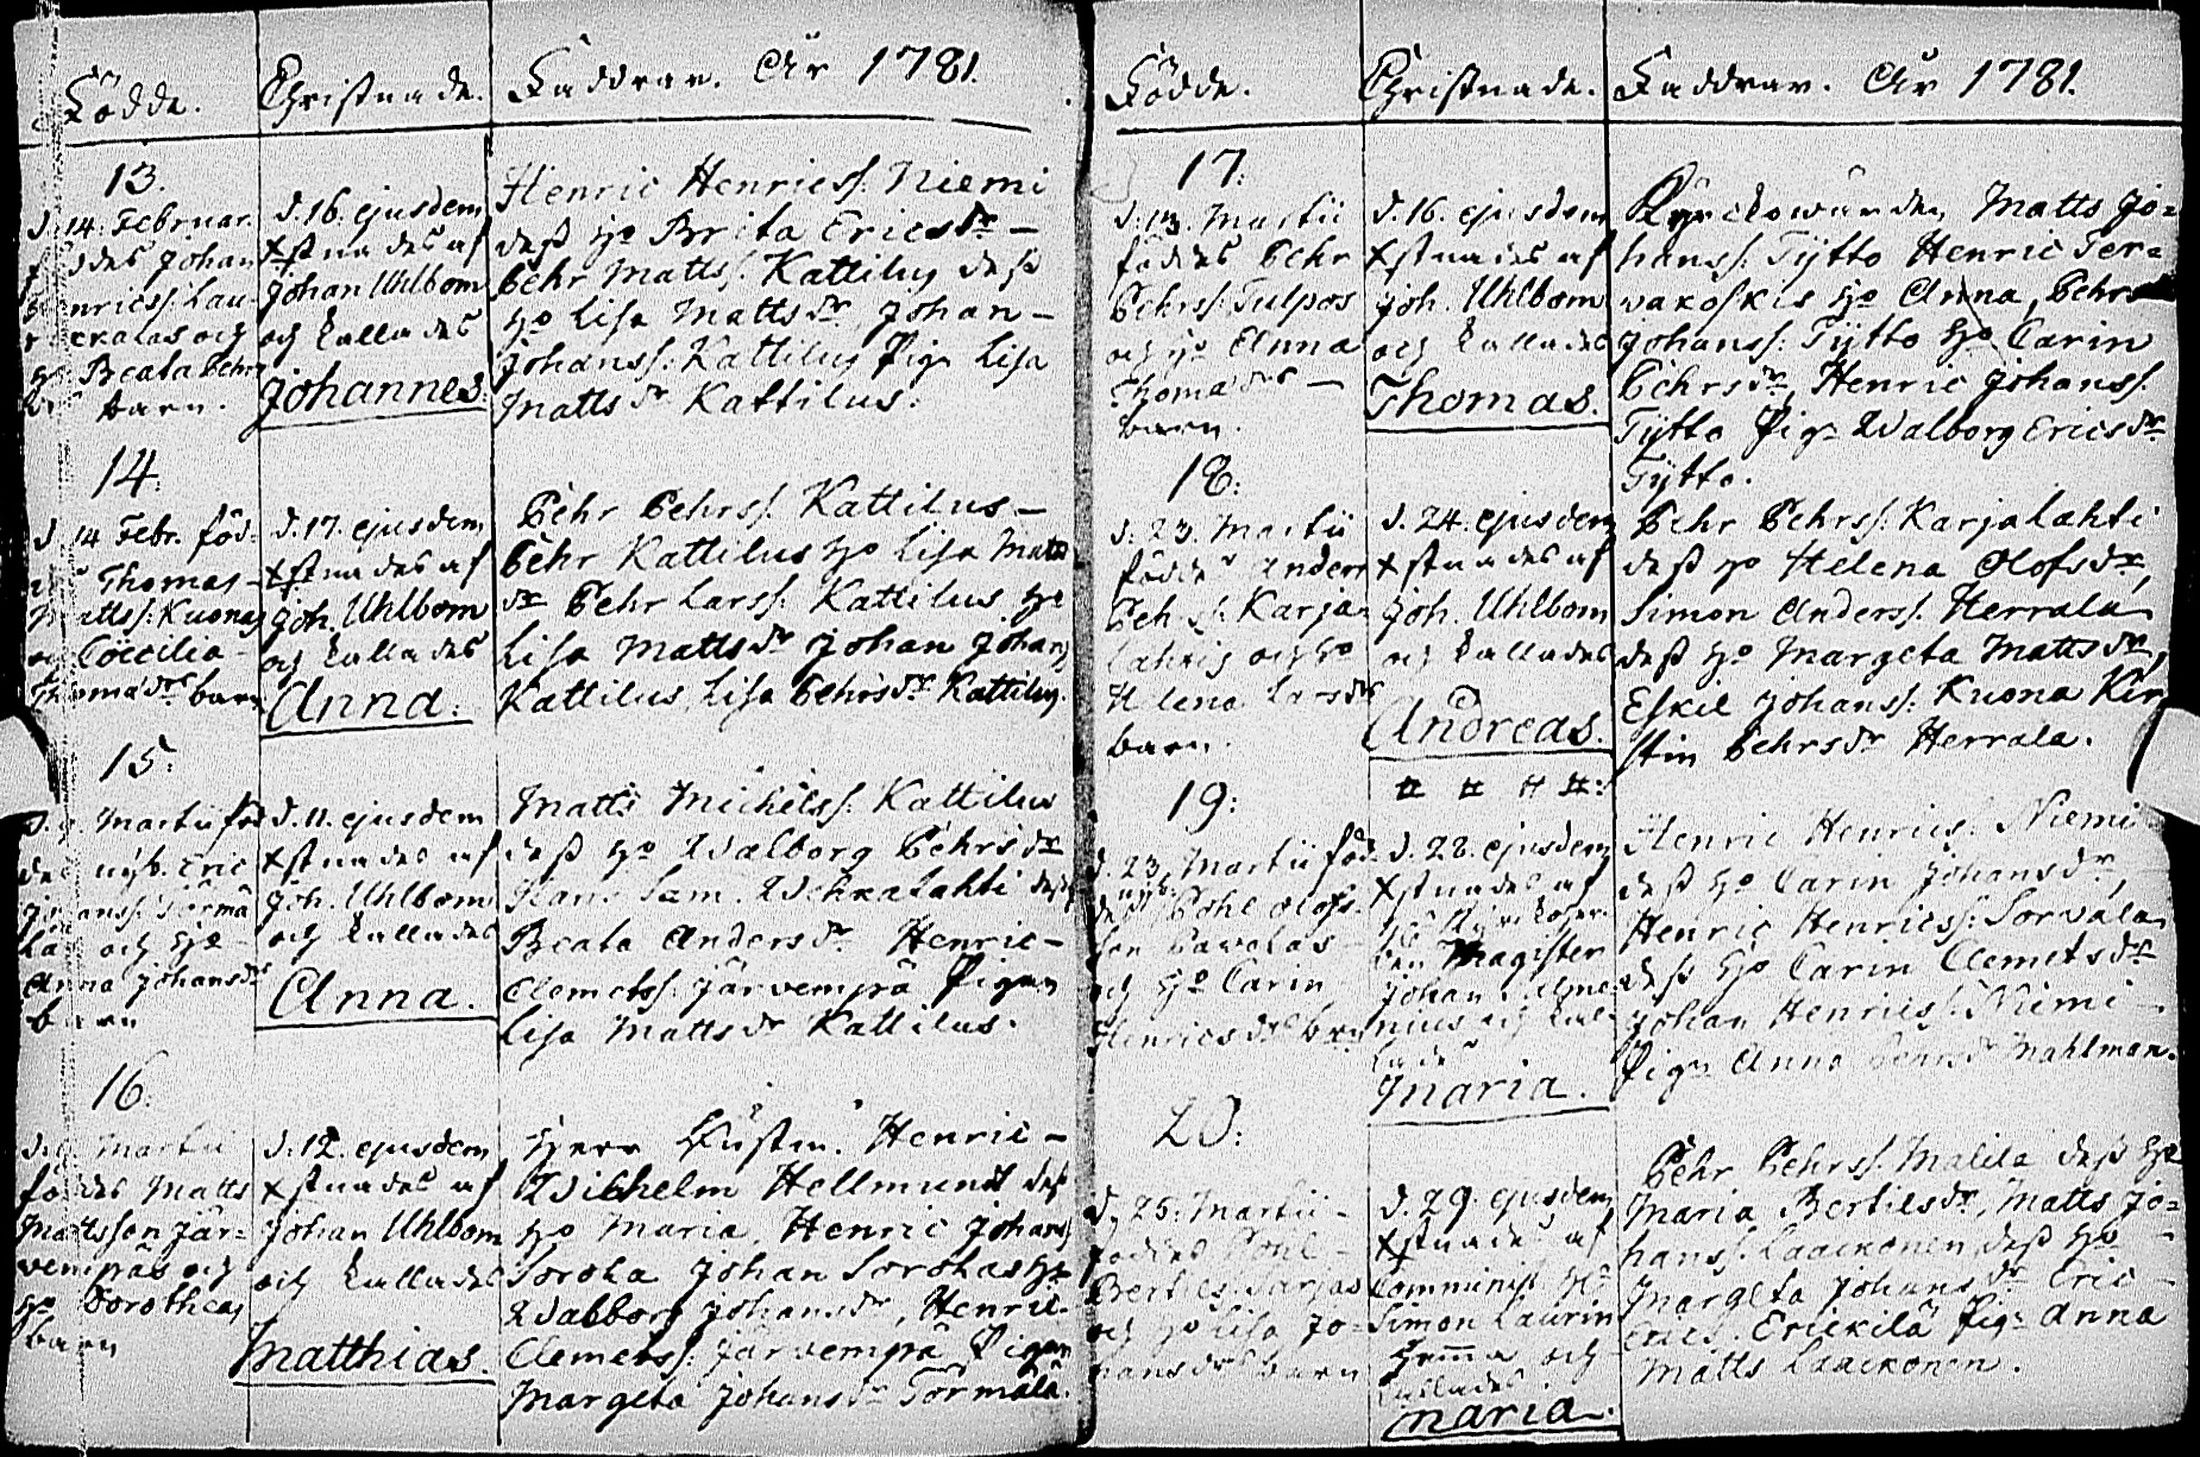 Födde.
Christnade.
Faddrar. År 1781.
13.
d. 14. Februar.
föddes Johan
Henricss. Lau-
rickalas och
ho Beata Pehrs
barn.
d. 16. ejusdem
xstnades af
Johan Uhlbom
och kallades
Johannes.
Henric Henricss. Niemi
dess ho Brita Ericsdr –
Pehr Mattss. Kattilus dess
ho Lisa Mattsdr, Johan –
Johanss. Kattilus Pig. Lisa
Mattsdr Kattilus.
14.
d. 14 Febr. föd-
Thomas
Mattss. Kuonas
och Cœcilia –
Thomædrs barn
d. 17. ejusdem
xstnades af
Joh. Uhlbom
och kallades
Anna.
Pehr Pehrss. Kattilus –
Pehr Kattilus ho Lisa Matts
dr Pehr Larss. Kattilus ho
Lisa Mattsdr Johan Johans
Kattilus, Lisa Pehrsdr Kattilus.
15.
Martii föd
des nyb. Eric
Johanss. Törmä
lä och ho
Anna Johansdr
barn
d. 11. ejusdem
xstnades af
Joh. Uhlbom
och kallades
Anna.
Matts Michelss. Kattilus
dess ho Walborg Pehrsdr
Sam. Wehkalahti dess
Beata Andersdr Henric –
Clemetss. Järvempä Pigan
Lisa Mattsdr Kattilus.
16.
Martii
föddes Matts
Mattsson Jär-
vempäs och
ho Dorotheas
barn
d. 12. ejusdem
xstnades af
Johan Uhlbom
och kallades
Matthias.
Herr Henric –
Wilhelm Hellmundt dess
ho Maria, Henric Johans
Soroka Johan Sorokas ho
Walborg Johansdr, Henric
Clemetss. Järvempä Pigan
Margeta Johansdr Törmälä.
Födde.
Christnade.
Faddrar. År 1781.
17.
d. 13. Martii
föddes Pehr
Pehrss. Tulpos
och ho Anna
Thomædrs –
barn.
d. 16. ejusdem
xstnades af
Joh. Uhlbom
och kallades
Thomas.
Kyrckowärden Matts Jo=
hanss. Tytto Henric Ter=
vakoskis ho Anna, Pehr
Johanss. Tytto ho Carin
Pehrsdr, Henric Johanss.
Tytto Pig. Walborg Ericsdr
Tytto.
18.
d. 23. Martii
föddes Anders
Pehrss. Karja-
lahtis och ho
Helena Larsdrs
barn.
d. 24. ejusdem
xstnades af
Joh. Uhlbom
och kallades
Andreas.
Pehr Pehrss. Karjalahti
dess ho Helena Olofsdr,
Simon Anderss. Herrala
dess ho Margeta Mattsdr,
Eskil Johanss. Kuona Kir
stin Pehrsdr Herrala.
19.
d. 23. Martii föd-
des nyb. Pohl Olofs-
son Pavolas
och ho Carin
Henricsdrs barn
# # # #:
d. 28. ejusdem
xstnades af
Magister
Johan
nius och kal-
lades
Maria.
Henric Henricss. Niemi
dess ho Carin Johansdr,
Henric Henricss. Sorvala
dess ho Carin Clemetsdr
Johan Henricss. Niemi
Pig. Anna Mahlman.
20.
d. 25. Martii –
föddes Pohl –
Bertils. Sarjas
och ho Lisa Jo=
hansdrs barn
d. 29. ejusdem
xstnades af
Comminist. Hr
Simon Laurin
hemma och
kallades
Maria.
Pehr Pehrss. Malila dess ho
Maria Bertilsdr, Matts Jo=
hanss. Laackonen, dess ho
Margeta Johansdr Eric –
Erics. Erickilä Pig. Anna
Matts Laackonen.